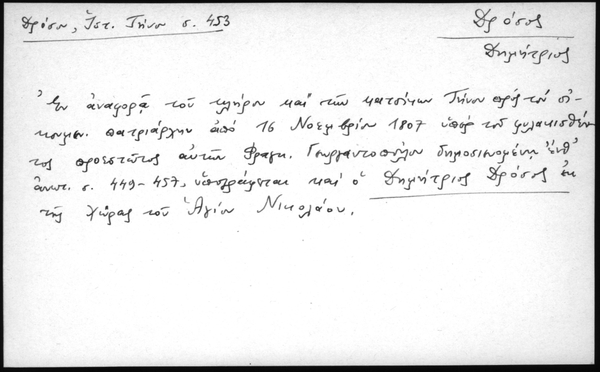 Δρόσου, Ἱστ. Τήνου σ. 453
Δρόσος
Δημήτριος
Ἐν ἀναφορᾷ τοῦ κλήρου καί τῶν κατοίκων Τήνου πρός τόν οἰ-
κουμεν. πατριάρχην ἀπό 16 Νοεμβρίου 1807 ὑπέρ τοῦ φυλακισθέν
τος προεστῶτος αὐτῶν Φραγκ. Γεωργαντοπούλου δημοσιευομένῃ ἐνθ'
ἀνωτ. σ. 449-457, ὑπογράφεται καί ὁ Δημήτριος Δρόσος ἐκ
τῆς Χώρας τοῦ Ἁγίου Νικολάου.